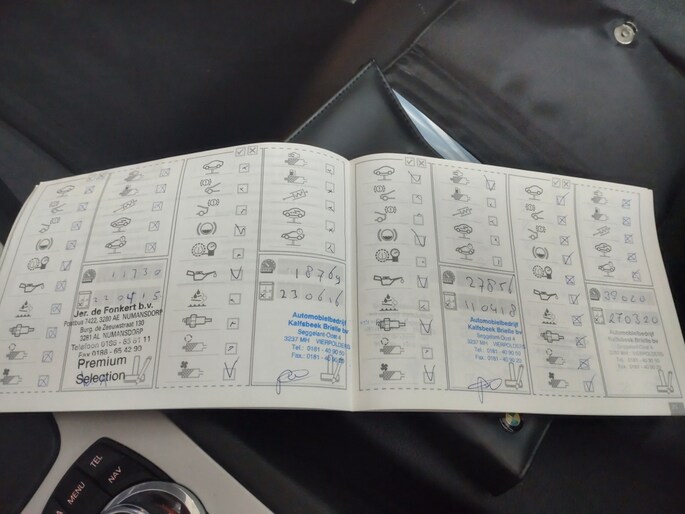 11330
220415
Jer. de Fonkert b.v.
Postbus 7422, 3280 AE NUMANSDORP
Burg. de Zeeuwstraat 130
3281 AL NUMANSDORP
Telefoon 0186 - 65 11
Fax 0186 - 65 42 90
Premium
Selection
18769
230616
Automobielbedrijf
Kaltsbeek Brielle bv
Seggelant-Oost 4
3237 MH VIERPOLDERS
Tel.: 0181 - 40 90 50
Fax: 0181 - 40 90
27856
110418
Automobielbedrijf
Kaltsbeek Brielle bv
Seggelant-Oost 4
3237 MH VIERPOLDERS
Tel.: 0181 - 40 90 50
Fax: 0181 - 40 90
270320
Automobielbedrijf
Kaltsbeek Brielle bv
3237 MH VIERPOLDERS
TEL
MENU
NAV